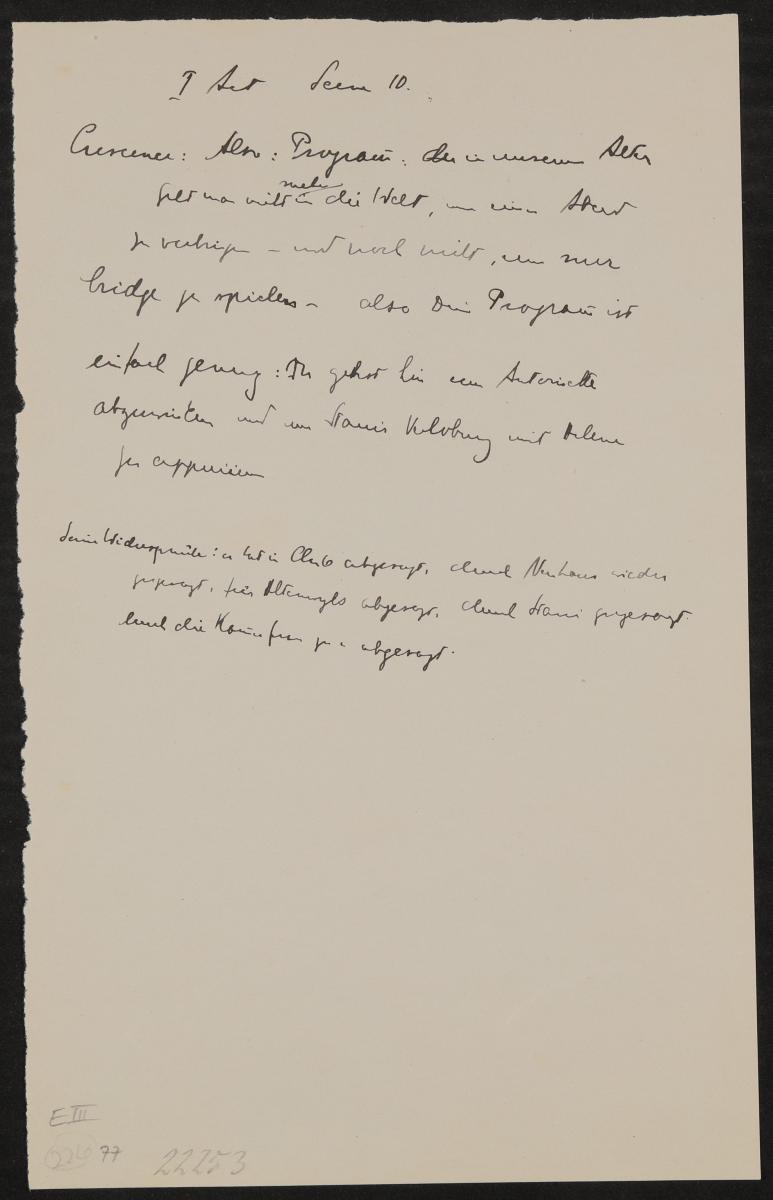 I Act Scene 10.
Crescence: Also: Program: denn in unserem Alter
geht man nicht mehr in die Welt, um einen Abend
zu verbringen – und noch nicht, um nur
bridge zu spielen – also Dein Program ist
einfach genug: Du gehst hin um Antoinette
abzuwinken und um Stanis mit Helene
zu
Seine Widersprüche: er hat im Club abgesagt, Neuhaus wieder
zugesagt, für Altenwyls abgesagt, Stani zugesagt.
durch die Kammerfrau abgesagt.
E III
226 77 22253